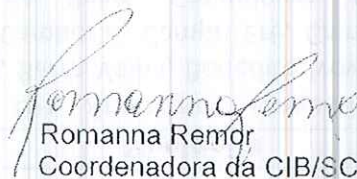 Romanna Remor
Romanna Remor
Coordenadora da CIB/SC